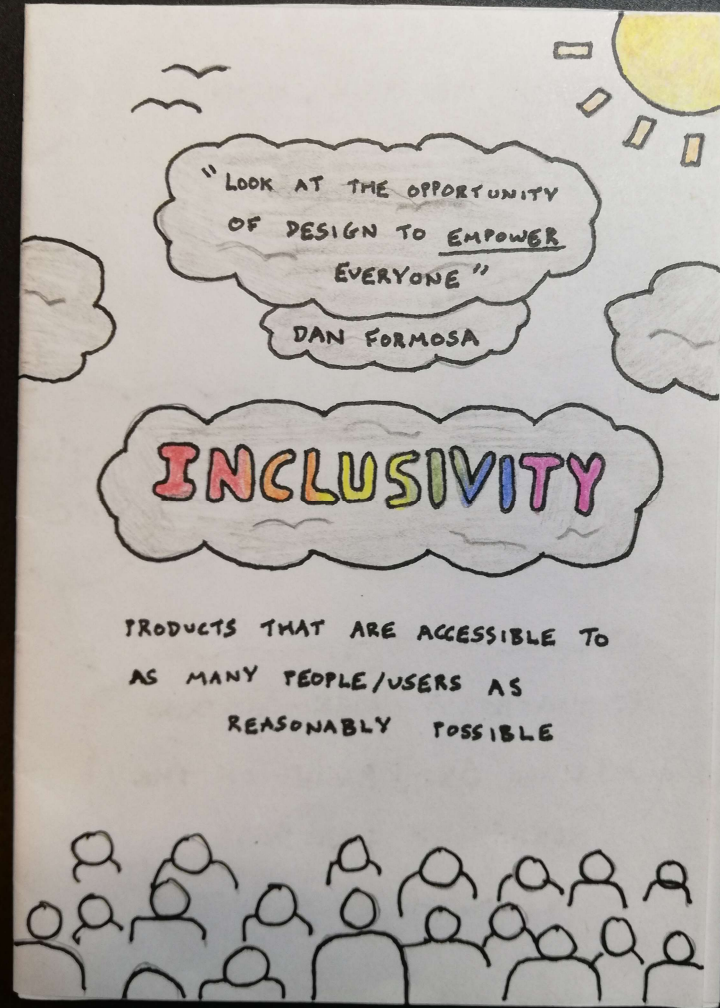 "LOOK AT THE OPPORTUNITY
OF DESIGN TO EMPOWER
EVERYONE"
DAN FORMOSA
INCLUSIVITY
PRODUCTS THAT ARE ACCESSIBLE TO
AS MANY PEOPLE/USERS AS
REASONABLY POSSIBLE